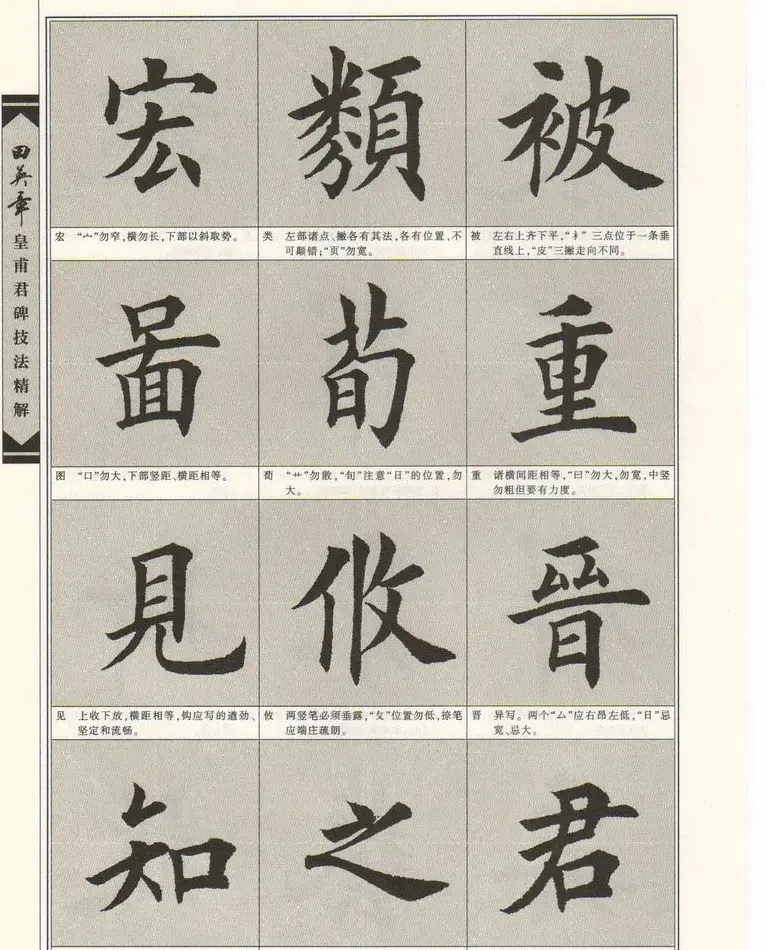 田英章
皇甫君碑技法精解
宏 類 被
宏 “宀”勿窄,横勿长,下部以斜取势。
类 左部诸点、撇各有其法,各有位置,不
可颠错;“页”勿宽。
被 左右上齐下平,“衤”三点位于一条垂
直线上,“皮”三撇走向不同。
啚 荀 重
图 “口”勿大,下部竖距、横距相等。
荀 “艹”勿散,“旬”注意“日”的位置,勿
大。
重 诸横间距相等,“曰”勿大,勿宽,中竖
勿粗但要有力度。
見 攸 晉
见 上收下放,横距相等,钩应写的遒劲、
坚定和流畅。
攸 两竖笔必须垂露,“攵”位置勿低,捺笔
应端庄疏朗。
晋 异写。两个“厶”应右昂左低,“日”忌
宽、忌大。
知 之 君